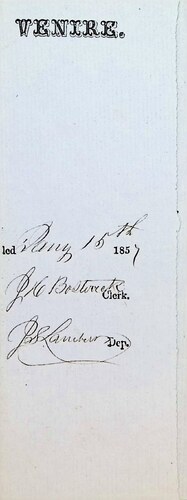 VENIRE.
led Aug 15th 1857
J C Bostwick Clerk.
J S Lambert Dep.